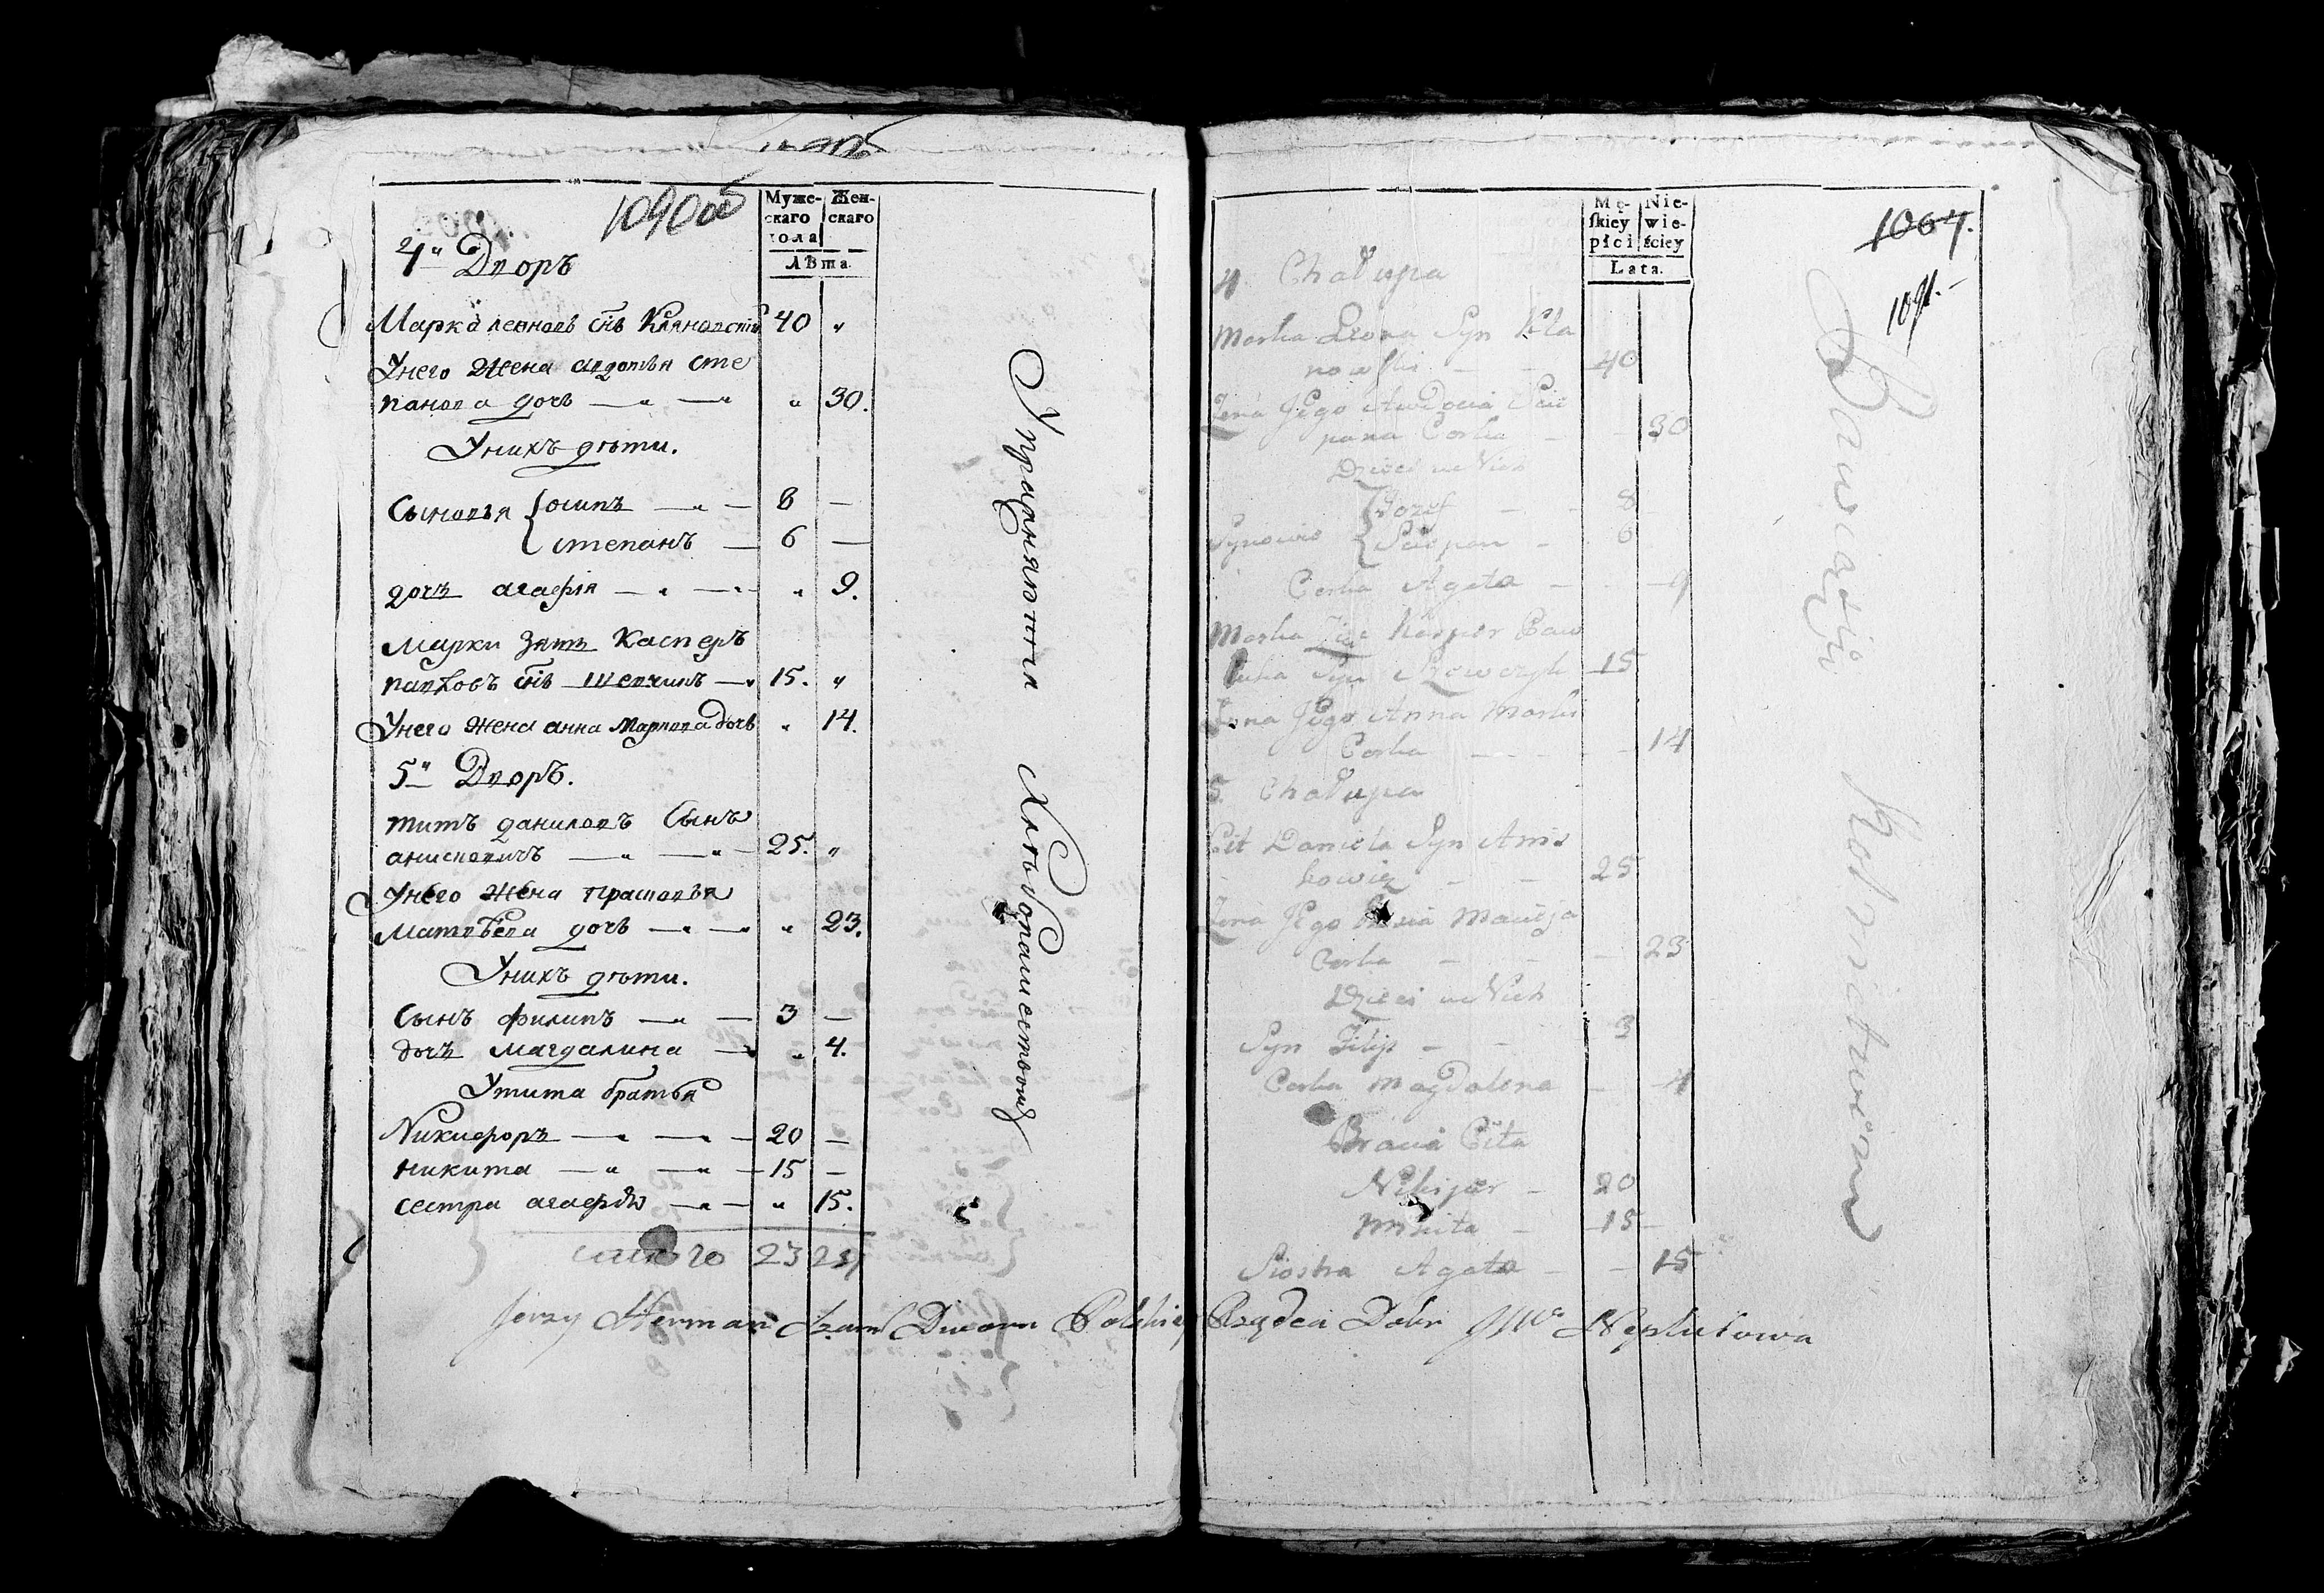 1090об
Муже-
скаго
пола
Жен-
скаго
ЛѢта.
4й Дворъ
Марко леоновъ снъ Кляновскій 40 "
Унего Жена авдотья сте
панова дочь — " — " " 30.
Унихъ дѣти.
Сыновья { осипъ — " — 8 —
степанъ — 6 —
дочь агафія — " — " " 9.
Марки зять Касперъ
павловъ снъ шевчикъ — " 15. "
Унего жена анна Маркова дочь " 14.
5й Дворъ.
титъ даниловъ Сынъ
анисковичъ — " — " — 25. "
Унего жена прасковья
Матвѣева дочь — " — " " 23.
Унихъ дѣти.
Сынъ филипъ — " — 3 —
дочь магдалина — " " 4.
Утита братья
Никифоръ — " — " — 20 —
никита — " — " — 15 —
сестра агафья — " — " 15.
Упражняются Хлѣбопашествомъ
1064.
1091.
Mę-
skiey
płci
Nie-
wie-
ściey
Lata.
4 Chałupa
Marka Leona Syn Kla
nowski — — 40
Żena Jego Awdocia Scie
pana Corka — — 30
Dzieci u Nich
Synowie { Jozef — — 8
Sciepan — 6
Corka Agata — — 9
Marka Zięć Kasper Paw
luka Syn Szewczyk 15
Żena Jego Anna Marki
Corka — — — 14
5. Chałupa
Cit Daniela Syn Anis
kowicz — — 25
Żena Jego Macieja
Corka — — — 23
Dzieci u Nich
Syn Filip — — 3
Corka Magdalena — 4
Bracia Cita
Nikiper — 20
Mikita — 15 —
Siostra Agata — — 15
Bawiący Rolnictwem
Jerzy Herman Dworu Polskiey Rządca Dobr